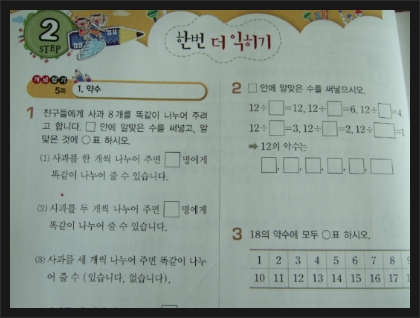 2
STEP
한번 더 익히기
개념잡기
5쪽
1. 약수
1 친구들에게 사과 8개를 똑같이 나누어 주려
고 합니다. □ 안에 알맞은 수를 써넣고, 알
맞은 것에 ○표 하시오.
(1) 사과를 한 개씩 나누어 주면 □ 명에게
똑같이 나누어 줄 수 있습니다.
(2) 사과를 두 개씩 나누어 주면 □ 명에게
똑같이 나누어 줄 수 있습니다.
(3) 사과를 세 개씩 나누어 주면 똑같이 나누
어 줄 수 (있습니다, 없습니다).
2 □ 안에 알맞은 수를 써넣으시오.
12÷□=12, 12÷□=6, 12÷□=4,
12÷□=3, 12÷□=2, 12÷□=1
➡ 12의 약수는
□, □, □, □, □, □
3 18의 약수에 모두 ○표 하시오.
1 2 3 4 5 6 7 8
10 11 12 13 14 15 16 17